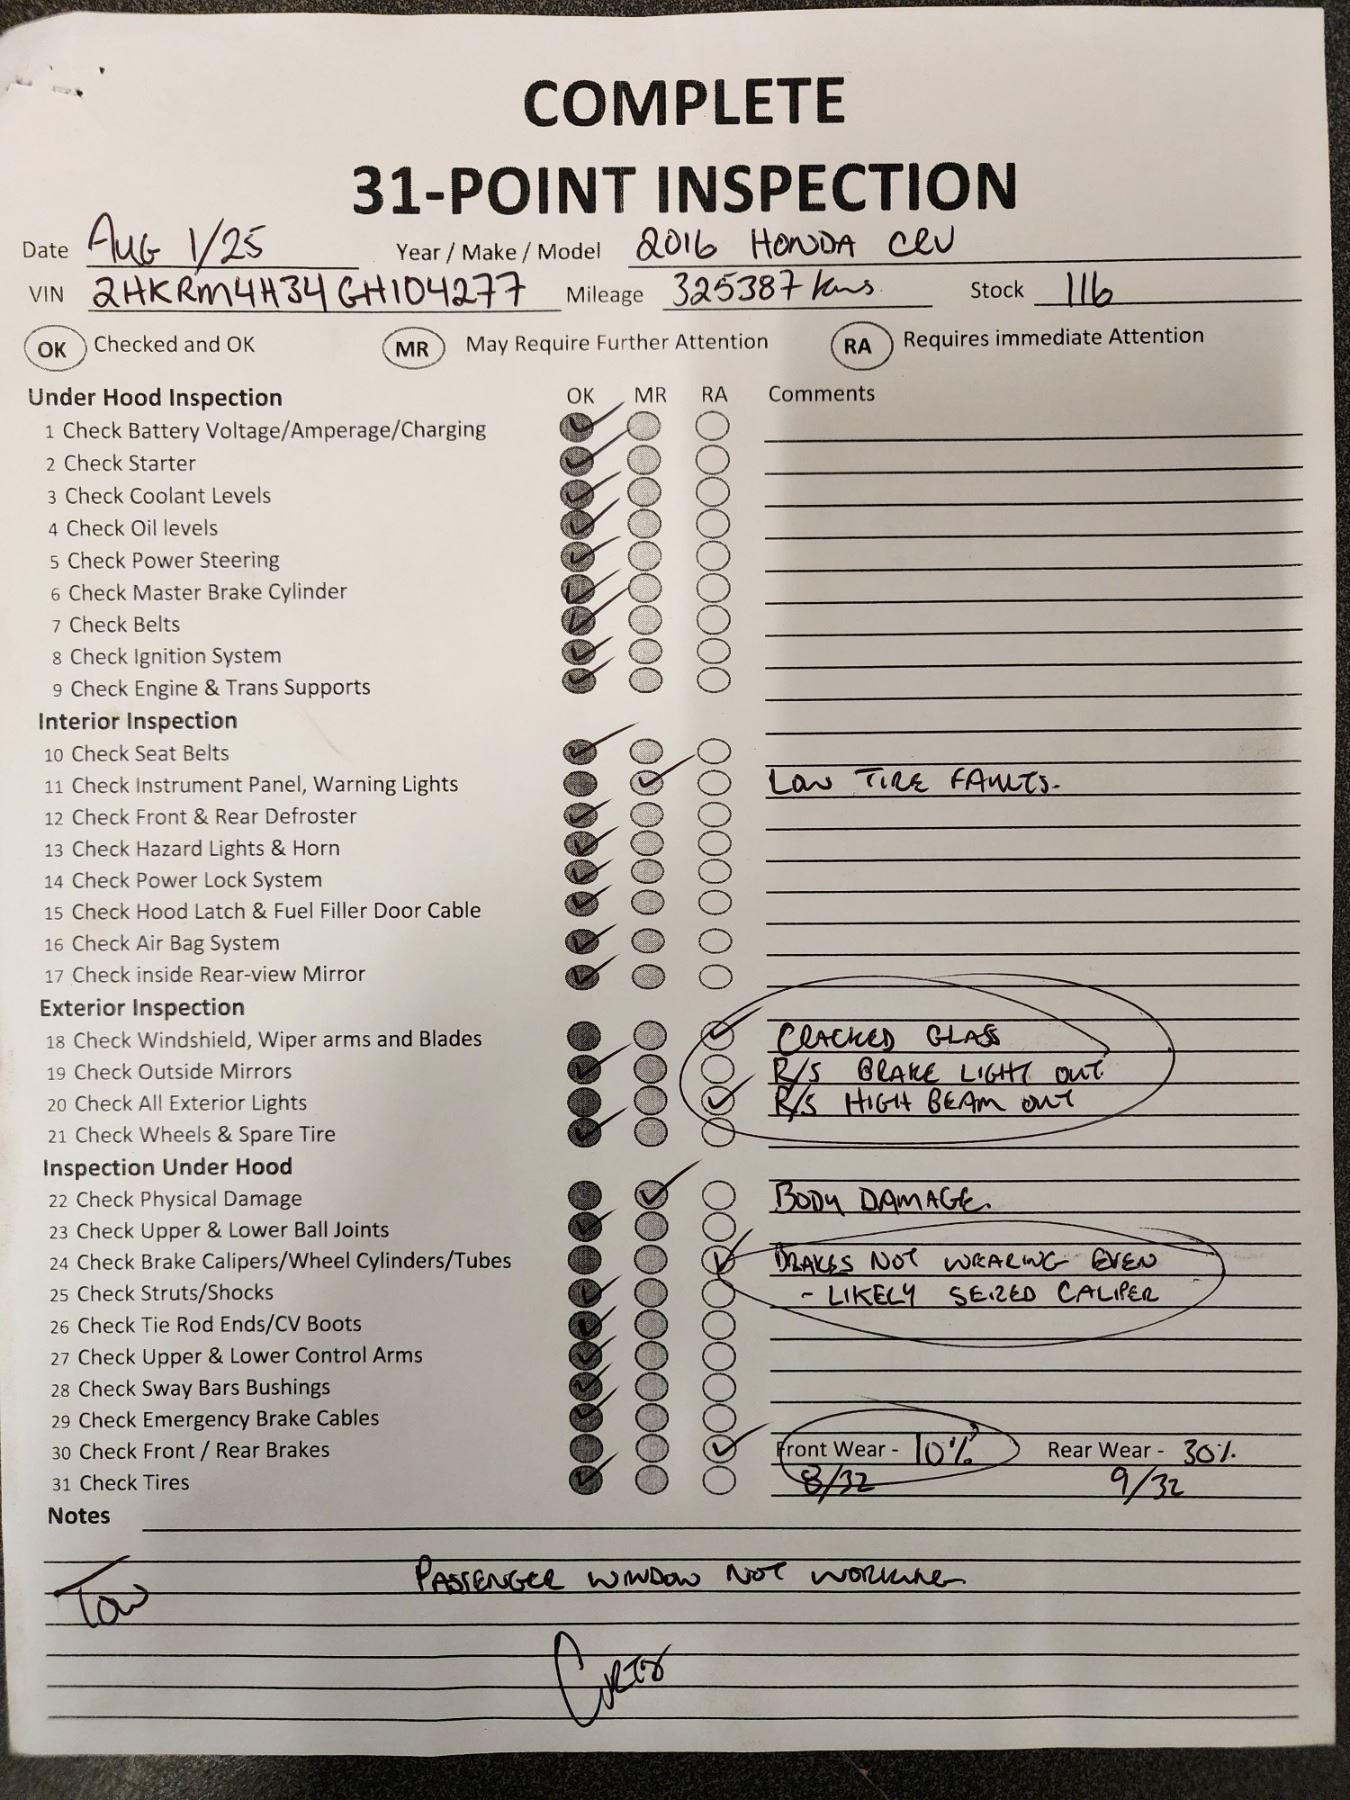 COMPLETE
31-POINT INSPECTION
Date AUG 1/25 Year / Make / Model 2016 HONDA CRV
VIN 2HKRM4H34GH104277 Mileage 325387 kms. Stock 116
OK Checked and OK MR May Require Further Attention RA Requires immediate Attention
Under Hood Inspection OK MR RA Comments
1 Check Battery Voltage/Amperage/Charging
2 Check Starter
3 Check Coolant Levels
4 Check Oil levels
5 Check Power Steering
6 Check Master Brake Cylinder
7 Check Belts
8 Check Ignition System
9 Check Engine & Trans Supports
Interior Inspection
10 Check Seat Belts
11 Check Instrument Panel, Warning Lights LOW TIRE FAULTS.
12 Check Front & Rear Defroster
13 Check Hazard Lights & Horn
14 Check Power Lock System
15 Check Hood Latch & Fuel Filler Door Cable
16 Check Air Bag System
17 Check inside Rear-view Mirror
Exterior Inspection
18 Check Windshield, Wiper arms and Blades CRACKED GLASS
19 Check Outside Mirrors R/S BRAKE LIGHT OUT
20 Check All Exterior Lights R/S HIGH BEAM OUT
21 Check Wheels & Spare Tire
Inspection Under Hood
22 Check Physical Damage BODY DAMAGE.
23 Check Upper & Lower Ball Joints
24 Check Brake Calipers/Wheel Cylinders/Tubes BRAKES NOT WEARING EVEN
25 Check Struts/Shocks - LIKELY SEIZED CALIPER
26 Check Tie Rod Ends/CV Boots
27 Check Upper & Lower Control Arms
28 Check Sway Bars Bushings
29 Check Emergency Brake Cables
30 Check Front / Rear Brakes Front Wear - 10% Rear Wear - 30%
31 Check Tires 8/32 9/32
Notes
PASSENGER WINDOW NOT WORKING
Tow
CURTIS